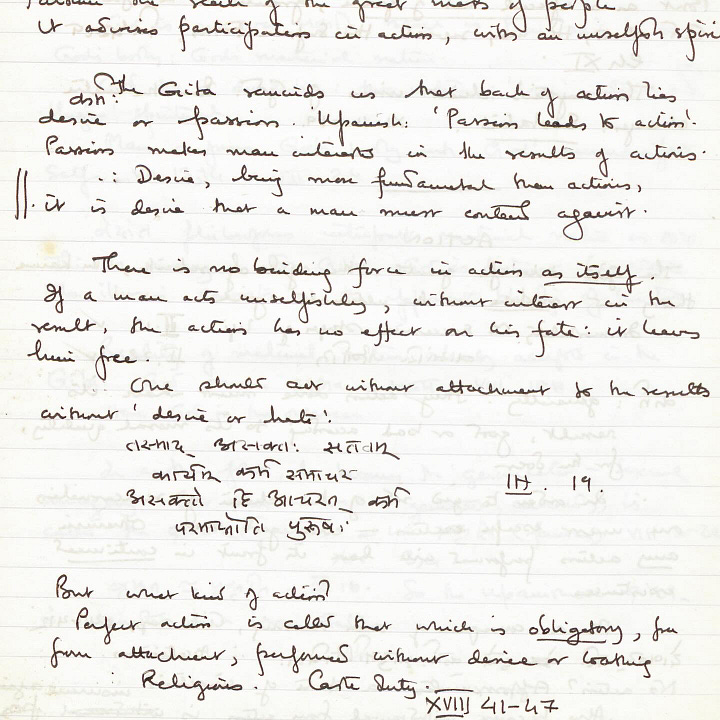 the reach of the great mass of people
It advises participation in action, with an unselfish spirit
The Gita reminds us that back of action lies
desire or passion. Upanish: 'Passion leads to action'.
Passion makes man interested in the results of actions.
∴ Desire, being more fundamental than actions,
it is desire that a man must contend against.
There is no binding force in action as itself.
If a man acts unselfishly, without interest in the
result, the action has no effect on his fate: it leaves
him free.
One should act without attachment to the results
without 'desire or hate'.
तस्मात् असक्तः सततं
कार्यम् कर्म समाचर
असक्तो हि आचरन् कर्म
परमाप्नोति पुरुषः
III. 19.
But what kind of action?
Perfect action is called that which is obligatory, free
from attachment, performed without desire or loathing
Religious. Caste Duty.
XVIII 41-47